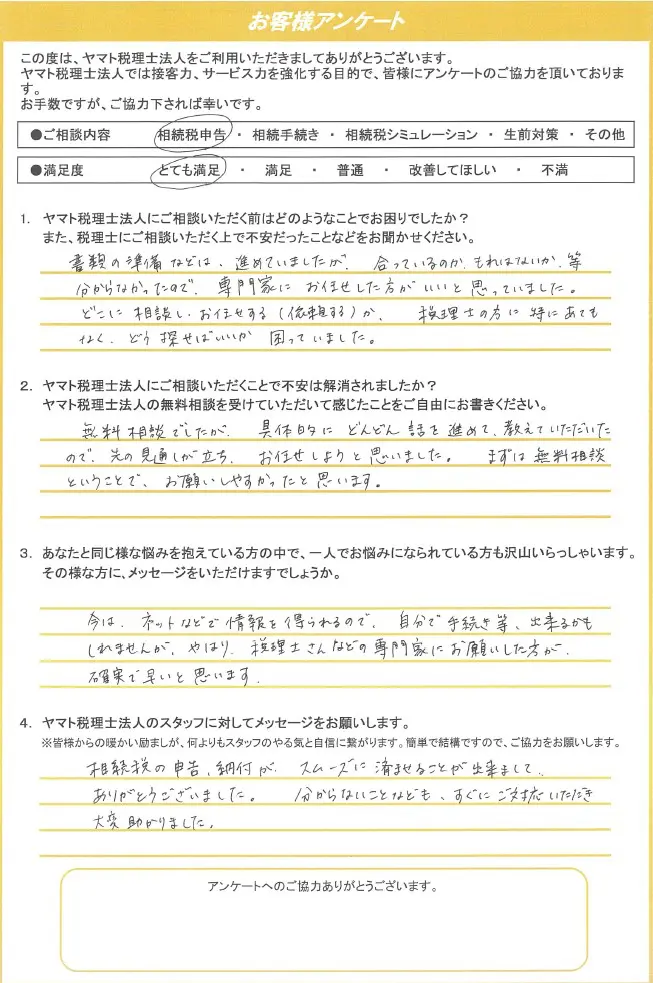 お客様アンケート
この度は、ヤマト税理士法人をご利用いただきましてありがとうございます。
ヤマト税理士法人では接客力、サービス力を強化する目的で、皆様にアンケートのご協力を頂いておりま
す。
お手数ですが、ご協力下されば幸いです。
●ご相談内容 相続税申告 ・ 相続手続き ・ 相続税シミュレーション ・ 生前対策 ・ その他
●満足度 とても満足 ・ 満足 ・ 普通 ・ 改善してほしい ・ 不満
1. ヤマト税理士法人にご相談いただく前はどのようなことでお困りでしたか？
また、税理士にご相談いただく上で不安だったことなどをお聞かせください。
書類の準備などは、進めていましたが、合っているのか、もれはないか、等
分からなかったので、専門家にお任せした方がいいと思っていました。
どこに相談し、お任せする(依頼する)か、税理士の方に特にあても
なく、どう探せばいいか困っていました。
2. ヤマト税理士法人にご相談いただくことで不安は解消されましたか？
ヤマト税理士法人の無料相談を受けていただいて感じたことをご自由にお書きください。
無料相談でしたが、具体的にどんどん話を進めて、教えていただいた
ので、先の見通しが立ち、お任せしようと思いました。まずは無料相談
ということで、お願いしやすかったと思います。
3. あなたと同じ様な悩みを抱えている方の中で、一人でお悩みになられている方も沢山いらっしゃいます。
その様な方に、メッセージをいただけますでしょうか。
今は、ネットなどで情報を得られるので、自分で手続き等、出来るかも
しれませんが、やはり、税理士さんなどの専門家にお願いした方が、
確実で早いと思います。
4. ヤマト税理士法人のスタッフに対してメッセージをお願いします。
※皆様からの暖かい励ましが、何よりもスタッフのやる気と自信に繋がります。簡単で結構ですので、ご協力をお願いします。
相続税の申告、納付が、スムーズに済ませることが出来まして、
ありがとうございました。分からないことなども、すぐにご対応いただき
大変助かりました。
アンケートへのご協力ありがとうございます。